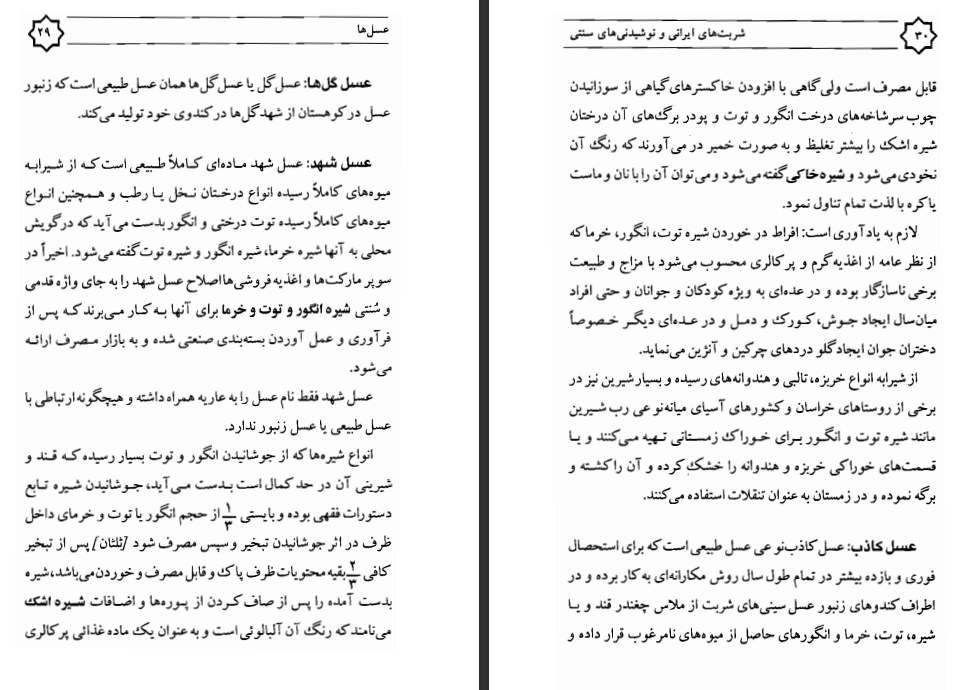 عسل‌ها
۲۹
عسل گل‌ها: عسل گل یا عسل گل‌ها همان عسل طبیعی است که زنبور
عسل در کوهستان از شهد گل‌ها در کندوی خود تولید می‌کند.
عسل شهد: عسل شهد ماده‌ای کاملاً طبیعی است که از شیرابه
میوه‌های کاملاً رسیده انواع درختان نخل یا رطب و همچنین انواع
میوه‌های کاملاً رسیده توت درختی و انگور بدست می‌آید که در گویش
محلی به آنها شیره خرما، شیره انگور و شیره توت گفته می‌شود. اخیراً در
سوپر مارکت‌ها و اغذیه فروشی‌ها اصلاح عسل شهد را به جای واژه قدمی
و سُنتی شیره انگور و توت و خرما برای آنها به کار می‌برند که پس از
فرآوری و عمل آوردن بسته‌بندی صنعتی شده و به بازار مصرف ارائه
می‌شود.
عسل شهد فقط نام عسل را به عاریه همراه داشته و هیچگونه ارتباطی با
عسل طبیعی یا عسل زنبور ندارد.
انواع شیره‌ها که از جوشانیدن انگور و توت بسیار رسیده که قند و
شیرینی آن در حد کمال است بدست می‌آید، جوشانیدن شیره تابع
دستورات فقهی بوده و بایستی ۱/۳ از حجم انگور یا توت و خرمای داخل
ظرف در اثر جوشانیدن تبخیر و سپس مصرف شود [ثلثان] پس از تبخیر
کافی ۲/۳ بقیه محتویات ظرف پاک و قابل مصرف و خوردن می‌باشد، شیره
بدست آمده را پس از صاف کردن از پوره‌ها و اضافات شیره اشک
می‌نامند که رنگ آن آلبالوئی است و به عنوان یک ماده غذائی پرکالری
شربت‌های ایرانی و نوشیدنی‌های سنتی
۳۰
قابل مصرف است ولی گاهی با افزودن خاکسترهای گیاهی از سوزانیدن
چوب سرشاخه‌های درخت انگور و توت و پودر برگ‌های آن درختان
شیره اشک را بیشتر تغلیظ و به صورت خمیر در می‌آورند که رنگ آن
نخودی می‌شود و شیره خاکی گفته می‌شود و می‌توان آن را با نان و ماست
یا کره با لذت تمام تناول نمود.
لازم به یادآوری است: افراط در خوردن شیره توت، انگور، خرما که
از نظر عامه از اغذیه گرم و پرکالری محسوب می‌شود با مزاج و طبیعت
برخی ناسازگار بوده و در عده‌ای به ویژه کودکان و جوانان و حتی افراد
میان‌سال ایجاد جوش، کورک و دمل و در عده‌ای دیگر خصوصاً
دختران جوان ایجاد گلو دردهای چرکین و آنژین می‌نماید.
از شیرابه انواع خربزه، تالبی و هندوانه‌های رسیده و بسیار شیرین نیز در
برخی از روستاهای خراسان و کشورهای آسیای میانه نوعی رب شیرین
مانند شیره توت و انگور برای خوراک زمستانی تهیه می‌کنند و یا
قسمت‌های خوراکی خربزه و هندوانه را خشک کرده و آن را کشته و
برگه نموده و در زمستان به عنوان تنقلات استفاده می‌کنند.
عسل کاذب: عسل کاذب نوعی عسل طبیعی است که برای استحصال
فوری و بازده بیشتر در تمام طول سال روش مکارانه‌ای به کار برده و در
اطراف کندوهای زنبور عسل سینی‌های شربت از ملاس چغندر قند و یا
شیره، توت، خرما و انگورهای حاصل از میوه‌های نامرغوب قرار داده و